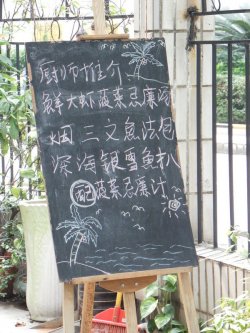 厨师推介
鲜大虾菠菜忌廉汤
烟三文鱼法包
深海银雪魚扒
配菠菜忌廉汁